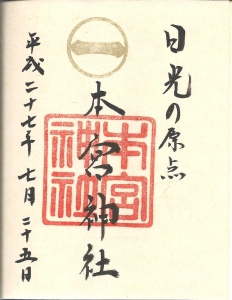 日光の原点
本宮神社
本宮
神社
平成二十七年 七月 二十五日